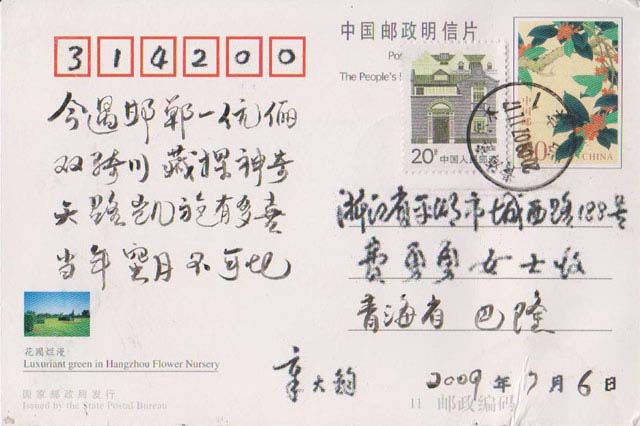 314200
今遇邯郸一伉俪
双骑川藏探神奇
天路凯旋有多喜
当年蜜月不可比
花圃烂漫
Luxuriant green in Hangzhou Flower Nursery
国家邮政局发行
Issued by the State Postal Bureau
中国邮政明信片
Po
The People's
20分 中国人民邮政
中国邮政
80分
CHINA
浙江省平湖市城西路188号
费勇勇女士收
青海省 巴隆
章大钧 2009年7月6日
11 邮政编码